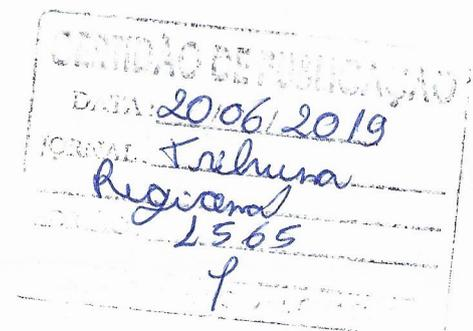 CERTIDÃO DE PUBLICAÇÃO
DATA: 20/06/2019
JORNAL: Tribuna
Regional
1565